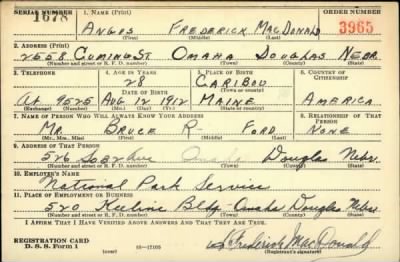 SERIAL NUMBER 1. NAME (Print) ORDER NUMBER
1678 ANGUS FREDERICK MACDONALD 3965
(First) (Middle) (Last)
2. ADDRESS (Print)
2558 CUMING ST OMAHA DOUGLAS NEBR.
(Number and street or R. F. D. number) (Town) (County) (State)
3. TELEPHONE 4. AGE IN YEARS 5. PLACE OF BIRTH 6. COUNTRY OF CITIZENSHIP
28 CARIBOU
DATE OF BIRTH (Town or county)
At 9525 AUG 12 1912 MAINE AMERICA
(Exchange) (Number) (Mo.) (Day) (Yr.) (State or country)
7. NAME OF PERSON WHO WILL ALWAYS KNOW YOUR ADDRESS 8. RELATIONSHIP OF THAT PERSON
MR. BRUCE R. FORD NONE
(Mr., Mrs., Miss) (First) (Middle) (Last)
9. ADDRESS OF THAT PERSON
526 So Omaha Douglas Nebr.
(Number and street or R. F. D. number) (Town) (County) (State)
10. EMPLOYER'S NAME
National Park Service
11. PLACE OF EMPLOYMENT OR BUSINESS
520 Keeline Bldg Omaha Douglas Nebr
(Number and street or R. F. D. number) (Town) (County) (State)
I AFFIRM THAT I HAVE VERIFIED ABOVE ANSWERS AND THAT THEY ARE TRUE.
REGISTRATION CARD
D. S. S. Form 1 (over) 16—17105 Frederick MacDonald
(Registrant's signature)